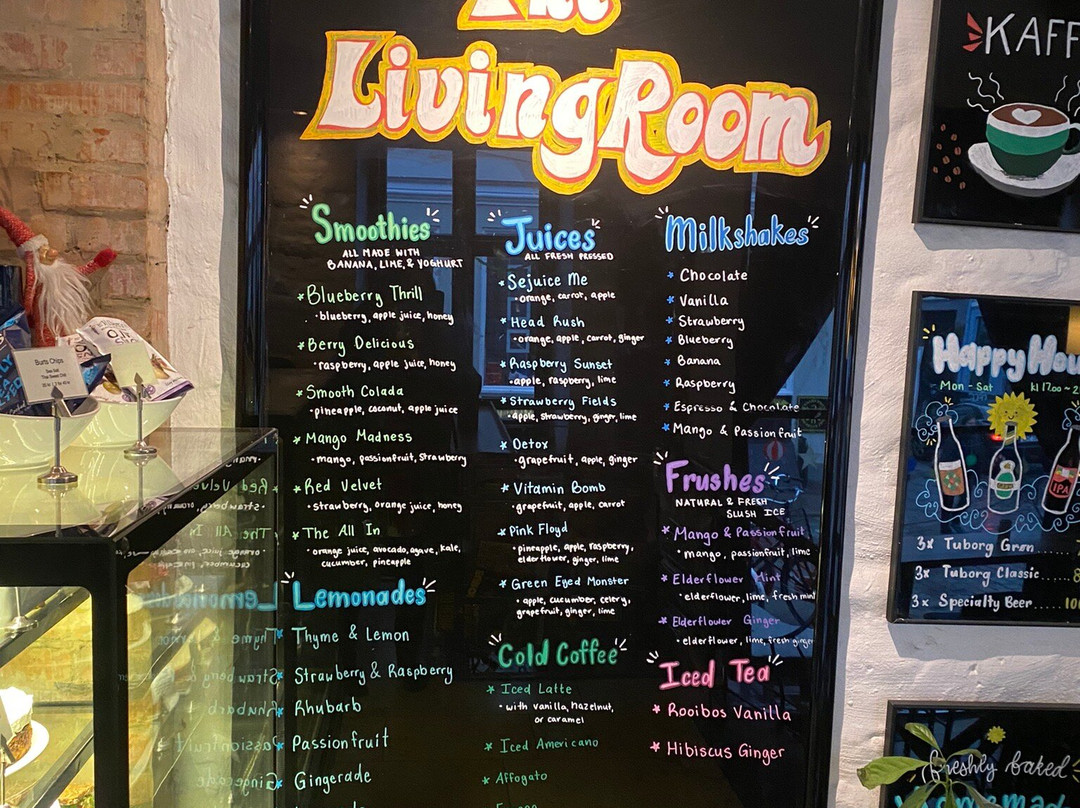 The
LivingRoom
Smoothies
ALL MADE WITH
BANANA, LIME, & YOGHURT
* Blueberry Thrill
• blueberry, apple juice, honey
* Berry Delicious
• raspberry, apple juice, honey
* Smooth Colada
• pineapple, coconut, apple juice
* Mango Madness
• mango, passionfruit, strawberry
* Red Velvet
• strawberry, orange juice, honey
* The All In
• orange juice, avocado, agave, kale,
cucumber, pineapple
Lemonades
* Thyme & Lemon
* Strawberry & Raspberry
* Rhubarb
* Passionfruit
* Gingerade
Juices
ALL FRESH PRESSED
* Sejuice Me
• orange, carrot, apple
* Head Rush
• orange, apple, carrot, ginger
* Raspberry Sunset
• apple, raspberry, lime
* Strawberry Fields
• apple, strawberry, ginger, lime
* Detox
• grapefruit, apple, ginger
* Vitamin Bomb
• grapefruit, apple, carrot
* Pink Floyd
• pineapple, apple, raspberry,
elderflower, ginger, lime
* Green Eyed Monster
• apple, cucumber, celery,
grapefruit, ginger, lime
Cold Coffee
* Iced Latte
• with vanilla, hazelnut,
or caramel
* Iced Americano
* Affogato
Milkshakes
* Chocolate
* Vanilla
* Strawberry
* Blueberry
* Banana
* Raspberry
* Espresso & Chocolate
* Mango & Passionfruit
Frushes
NATURAL & FRESH
SLUSH ICE
* Mango & Passionfruit
• mango, passionfruit, lime
* Elderflower Mint
• elderflower, lime, fresh mint
* Elderflower Ginger
• elderflower, lime, fresh ginger
Iced Tea
* Rooibos Vanilla
* Hibiscus Ginger
KAFF
Happy Hou
Mon - Sat kl 17.00 ~ 2
IPA
3x Tuborg Grøn
3x Tuborg Classic
3x Specialty Beer
freshly baked
Burts Chips
Sea Salt